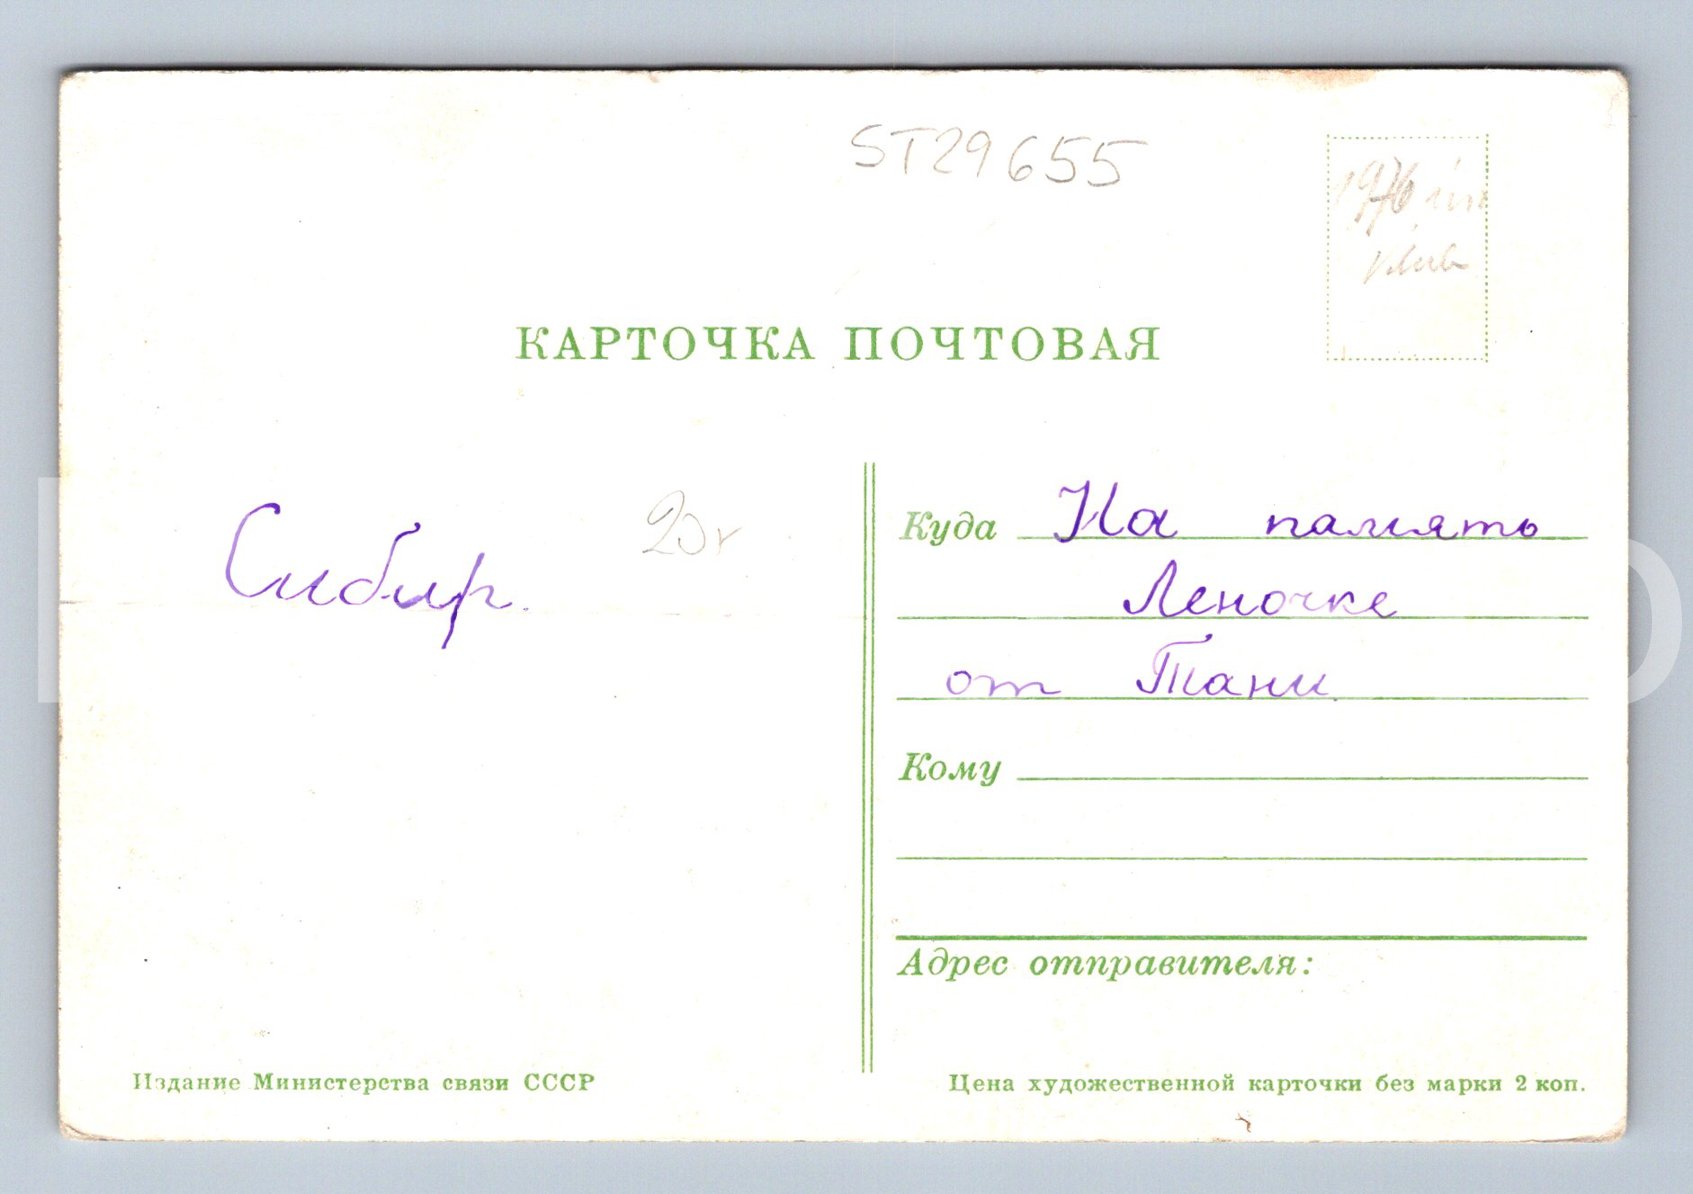 ST29655
КАРТОЧКА ПОЧТОВАЯ
Сибир.
Куда На память
Леночке
от Тани
Кому
Адрес отправителя:
Издание Министерства связи СССР
Цена художественной карточки без марки 2 коп.